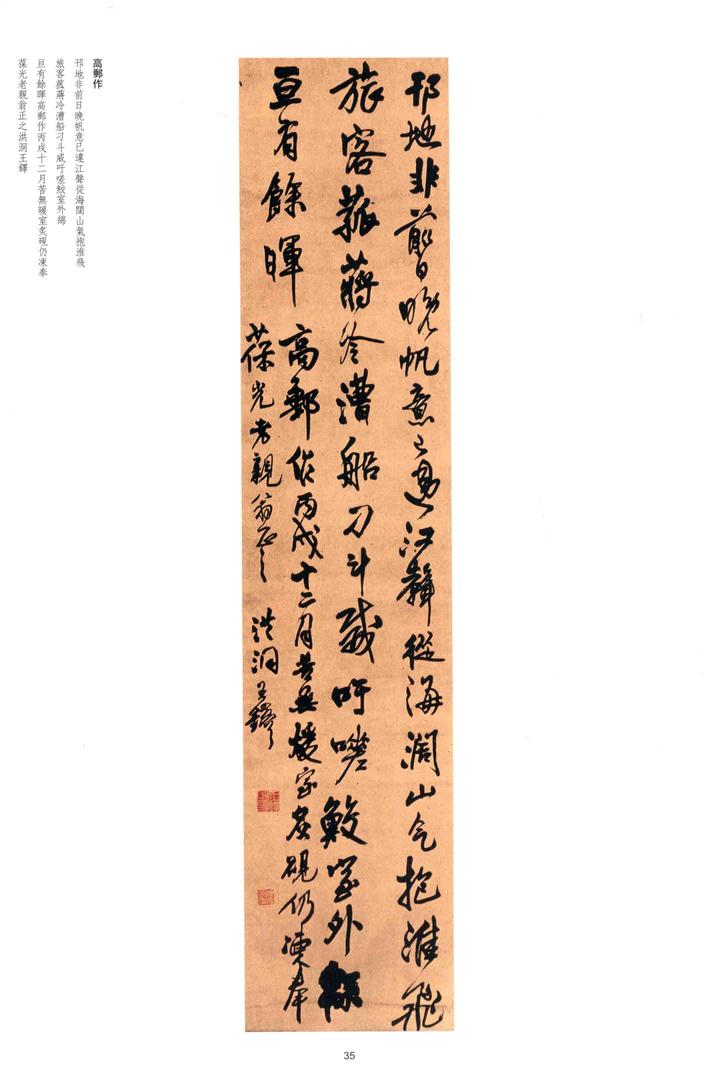 邗地非前日晚帆意已違江聲從海闊山气抱淮飛
旅客菰蔣冷漕船刁斗威吁嗟鮫室外綿
亘有餘暉 高郵作丙戌十二月苦無煖室炙硯仍凍奉
葆光老親翁正之 洪洞王鐸
高郵作
邗地非前日晚帆意已違江聲從海闊山氣抱淮飛
旅客菰蔣冷漕船刁斗威吁嗟鮫室外綿
亘有餘暉高郵作丙戌十二月苦無暖室炙硯仍凍奉
葆光老親翁正之洪洞王鐸
35